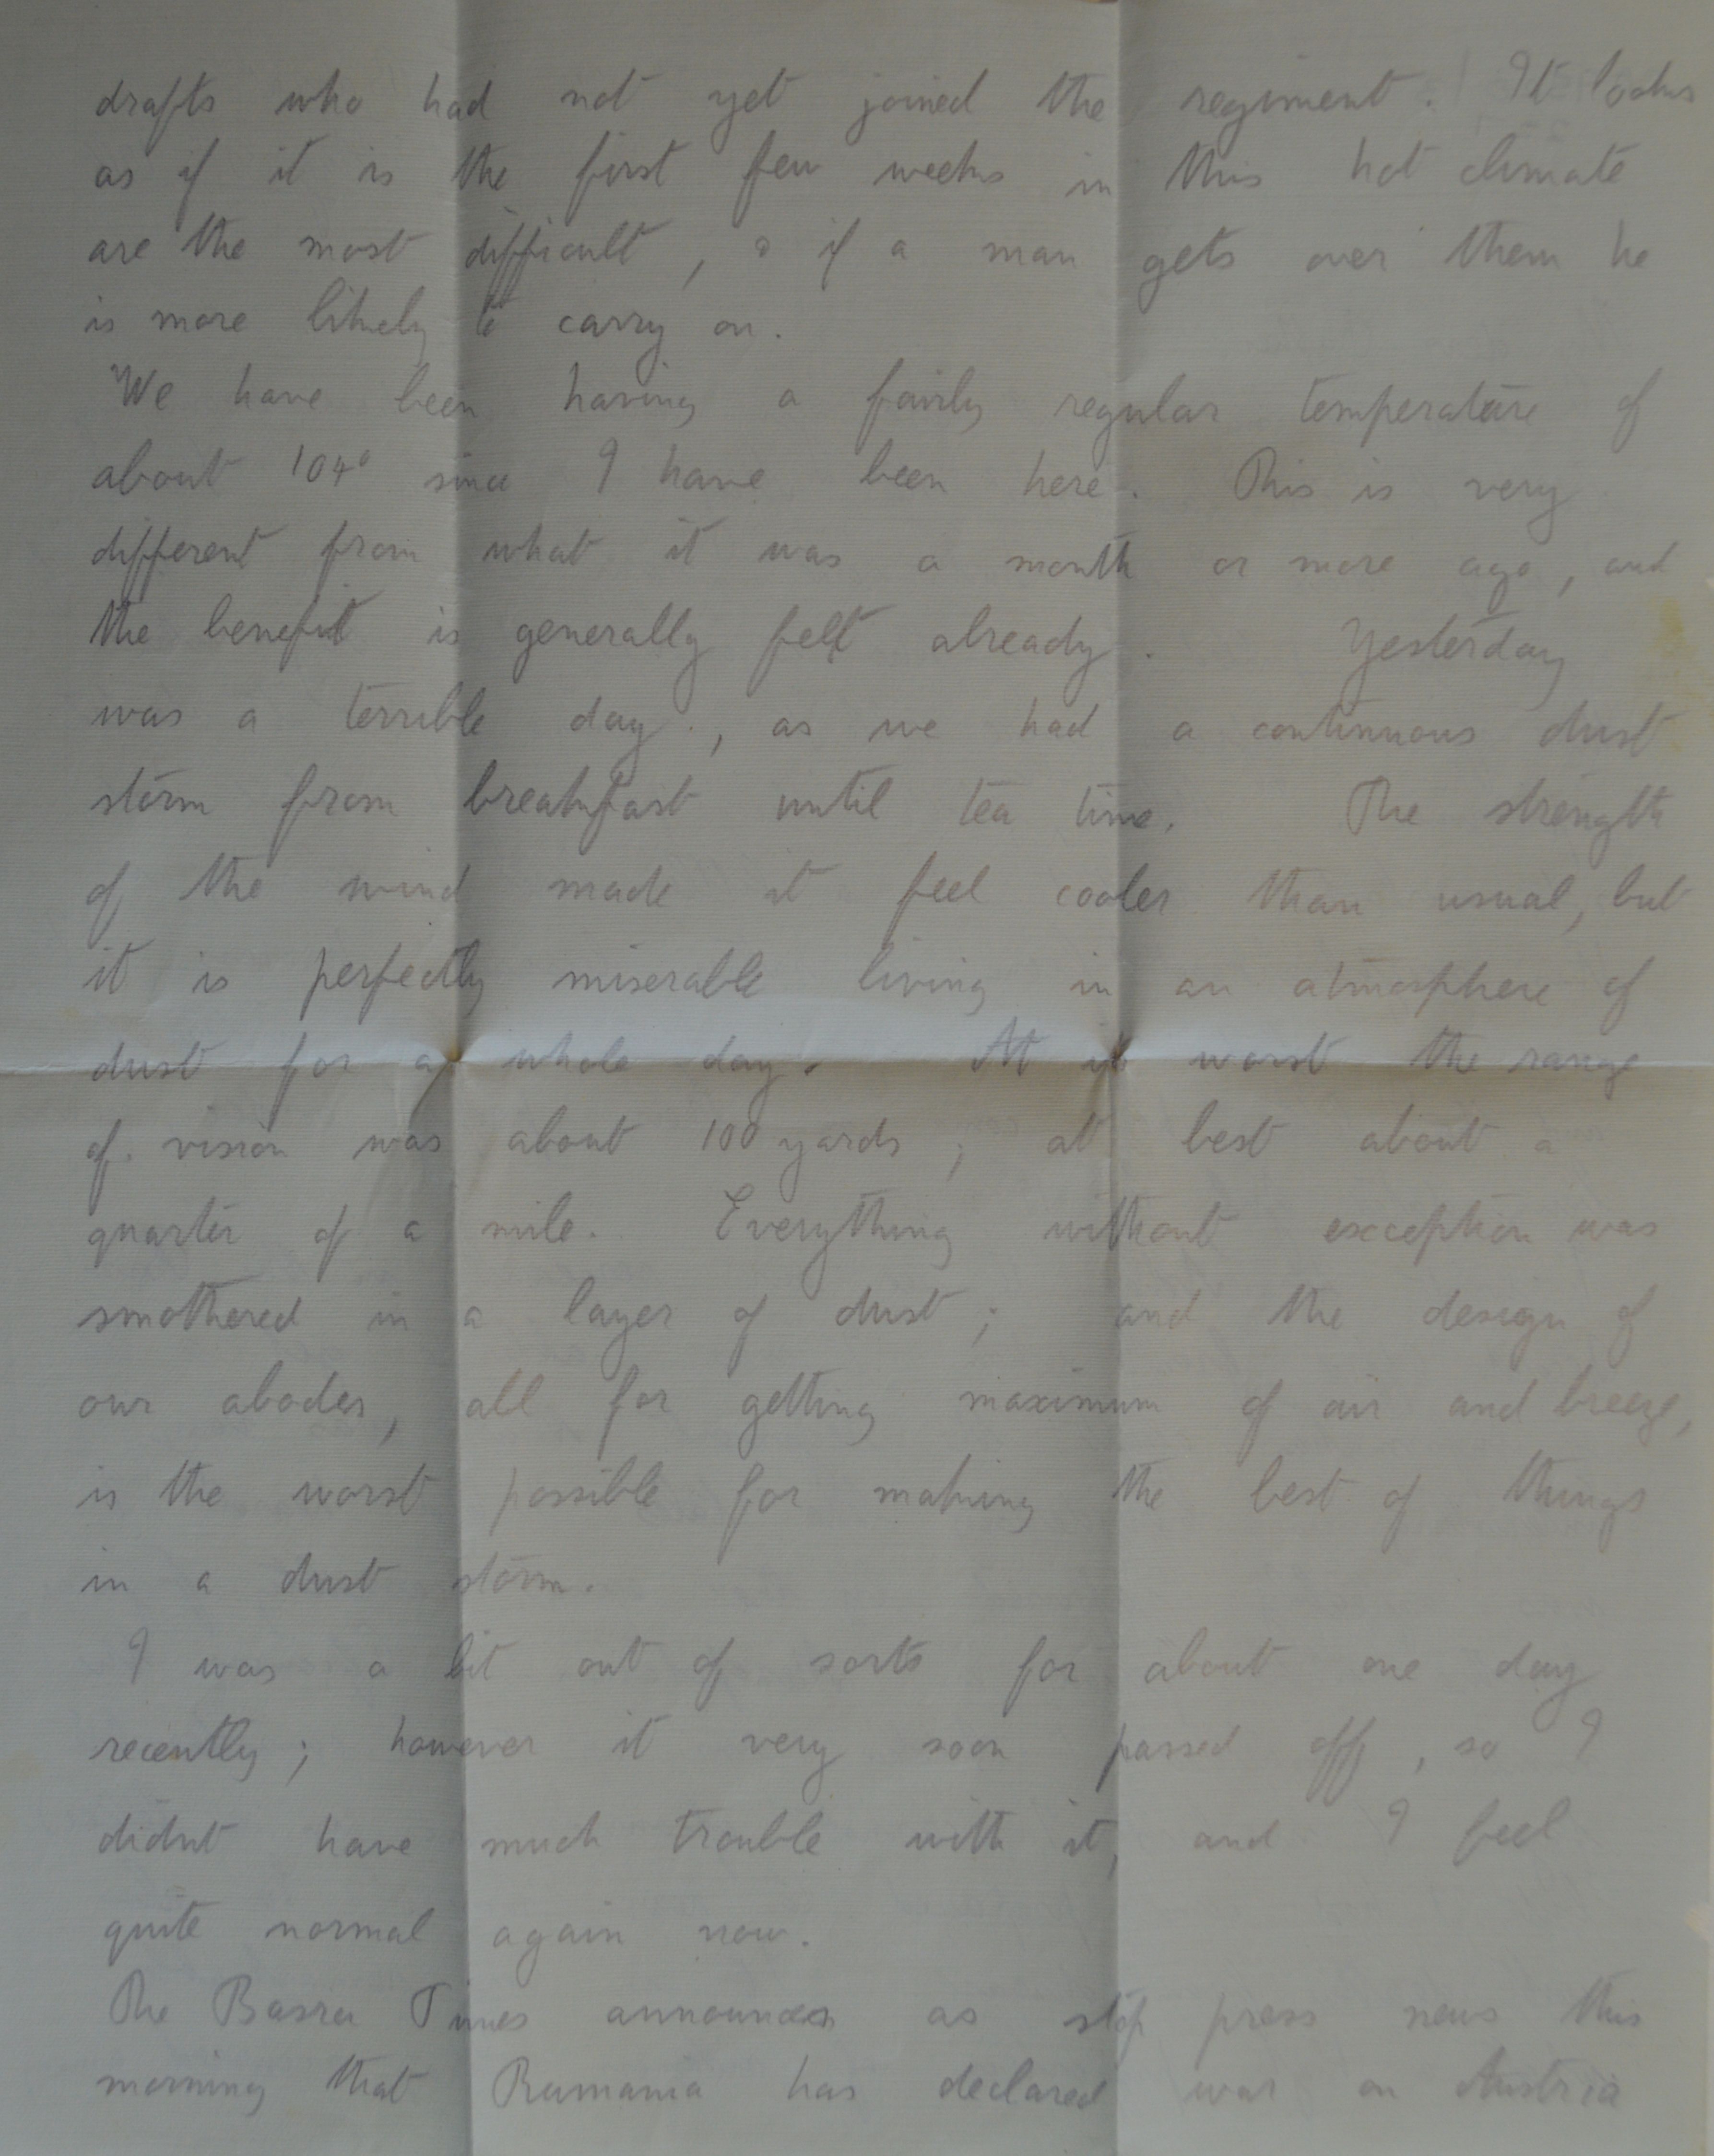 drafts who had not yet joined the regiment. It looks
as if it is the first few weeks in this hot climate
are the most difficult, & if a man gets over them he
is more likely to carry on.
We have been having a fairly regular temperature of
about 104° since I have been here. This is very
different from what it was a month or more ago, and
the benefit is generally felt already. Yesterday
was a terrible day., as we had a continuous dust
storm from breakfast until tea time. The strength
of the wind made it feel cooler than usual, but
it is perfectly miserable living in an atmosphere of
dust for a whole day. At its worst the range
of vision was about 100 yards; at best about a
quarter of a mile. Everything without exception was
smothered in a layer of dust; and the design of
our abodes, all for getting maximum of air and breeze,
is the worst possible for making the best of things
in a dust storm.
I was a bit out of sorts for about one day
recently; however it very soon passed off, so I
didnt have much trouble with it, and I feel
quite normal again now.
The Basra Times announces as stop press news this
morning that Rumania has declared war on Austria